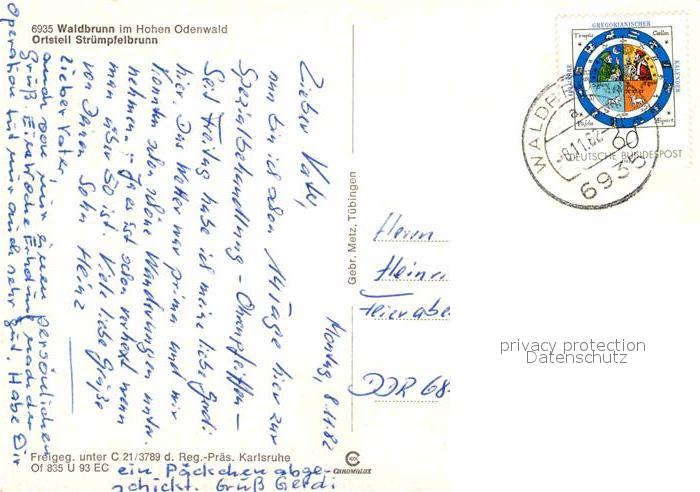 6935 Waldbrunn im Hohen Odenwald
Ortsteil Strümpfelbrunn
GREGORIANISCHER
KALENDER
DEUTSCHE BUNDESPOST
60
WALDBR
-8.11.82
6935
Gebr. Metz, Tübingen
Montag, 8.11.82
Lieber Vater,
nun bin ich schon 14 Tage hier zur
Spezialbehandlung - Ohrenpfeifen -
Seit Freitag habe ich meine liebe Gerdi
hier. Das Wetter war prima und wir
konnten schon schöne Wanderungen unter-
nehmen. Ja es ist schon verhext wenn
man über 50 ist. Viele liebe Grüße
von Deinem Sohn Heinz
Lieber Vater,
auch von mir einen persönlichen
Gruß. Eine Woche Erholung nach der
Operation tut mir auch sehr gut. Habe Dir
ein Päckchen abge-
schickt. Gruß Gerdi
Herrn
DDR 68
Freigeg. unter C 21/3789 d. Reg.-Präs. Karlsruhe
Of 835 U 93 EC
CHROMOLUX
privacy protection
Datenschutz